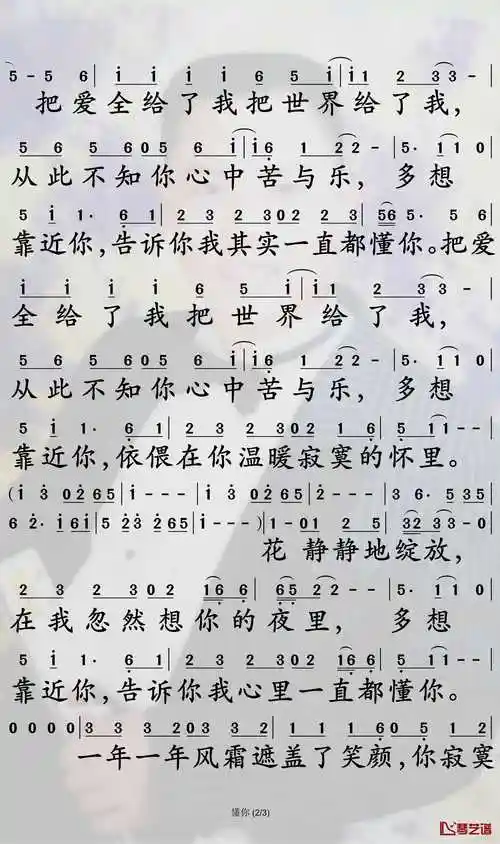 5 - 5 6 | i i i i 6 5 i | i i1 2 3 3 - |
把爱全给了我把世界给了我，
5 6 5 6 0 5 6 i | i 6 1 2 2 - | 5· 1 1 0 |
从此不知你心中苦与乐，多想
5 i 1· 6 1 | 2 3 2 3 2 3 0 2 2 3 | 5 6 5· 5 6 |
靠近你，告诉你我其实一直都懂你。把爱
i i i i 6 5 i | i i 1 2 3 3 - |
全给了我把世界给了我，
5 6 5 6 0 5 6 i | i 6 1 2 2 - | 5· 1 1 0 |
从此不知你心中苦与乐，多想
5 i 1· 6 1 | 2 3 2 3 0 2 2 1 6 | 5 1 1 - |
靠近你，依偎在你温暖寂寞的怀里。
(i 3 0 2 6 5 | i - - - | i 3 0 2 6 5 | 2 - - - | 3 6· 5 3 5 |
6 2· i 6 i | 5 2 3 2 6 5 | i - - - ) | 1 - 0 1 2 5 | 3 2 3 3 - 0 |
花 静静地绽放，
2 3 2 3 0 2 1 6 6 | 6 5 5 2 2 - | 5· 1 1 0 |
在我忽然想你的夜里，多想
5 i 1· 6 1 | 2 3 2 3 0 2 2 1 6 6 | 5 1 1 - |
靠近你，告诉你我心里一直都懂你。
0 0 0 0 | 3 3 3 2 0 3 3 2 | 1 1 1 6 0 5 1 2 |
一年一年风霜遮盖了笑颜，你寂寞
懂你 (2/3)
琴艺谱